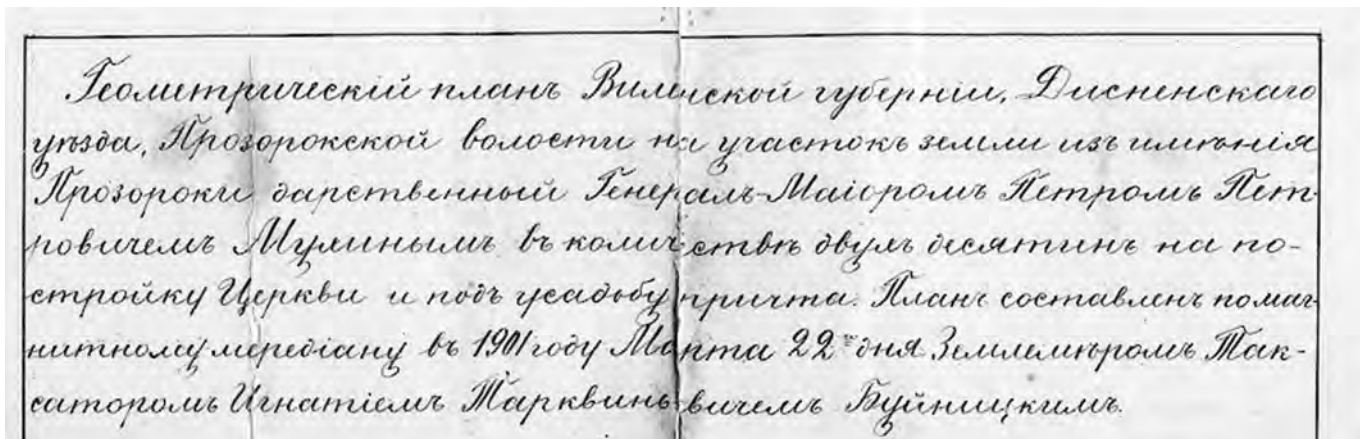 Геометрическій планъ Виленской губерніи, Дисненскаго
уѣзда, Прозорокской волости на участокъ земли изъ имѣнія
Прозороки дарственный Генералъ-Маіоромъ Петромъ Пет-
ровичемъ Мухинымъ въ количествѣ двухъ десятинъ на по-
стройку Церкви и подъ усадьбу причта. Планъ составленъ по маг-
нитному меридіану въ 1901 году Марта 22 дня Землемѣромъ Так-
саторомъ Игнатіемъ Тарквиньевичемъ Буйницкимъ.